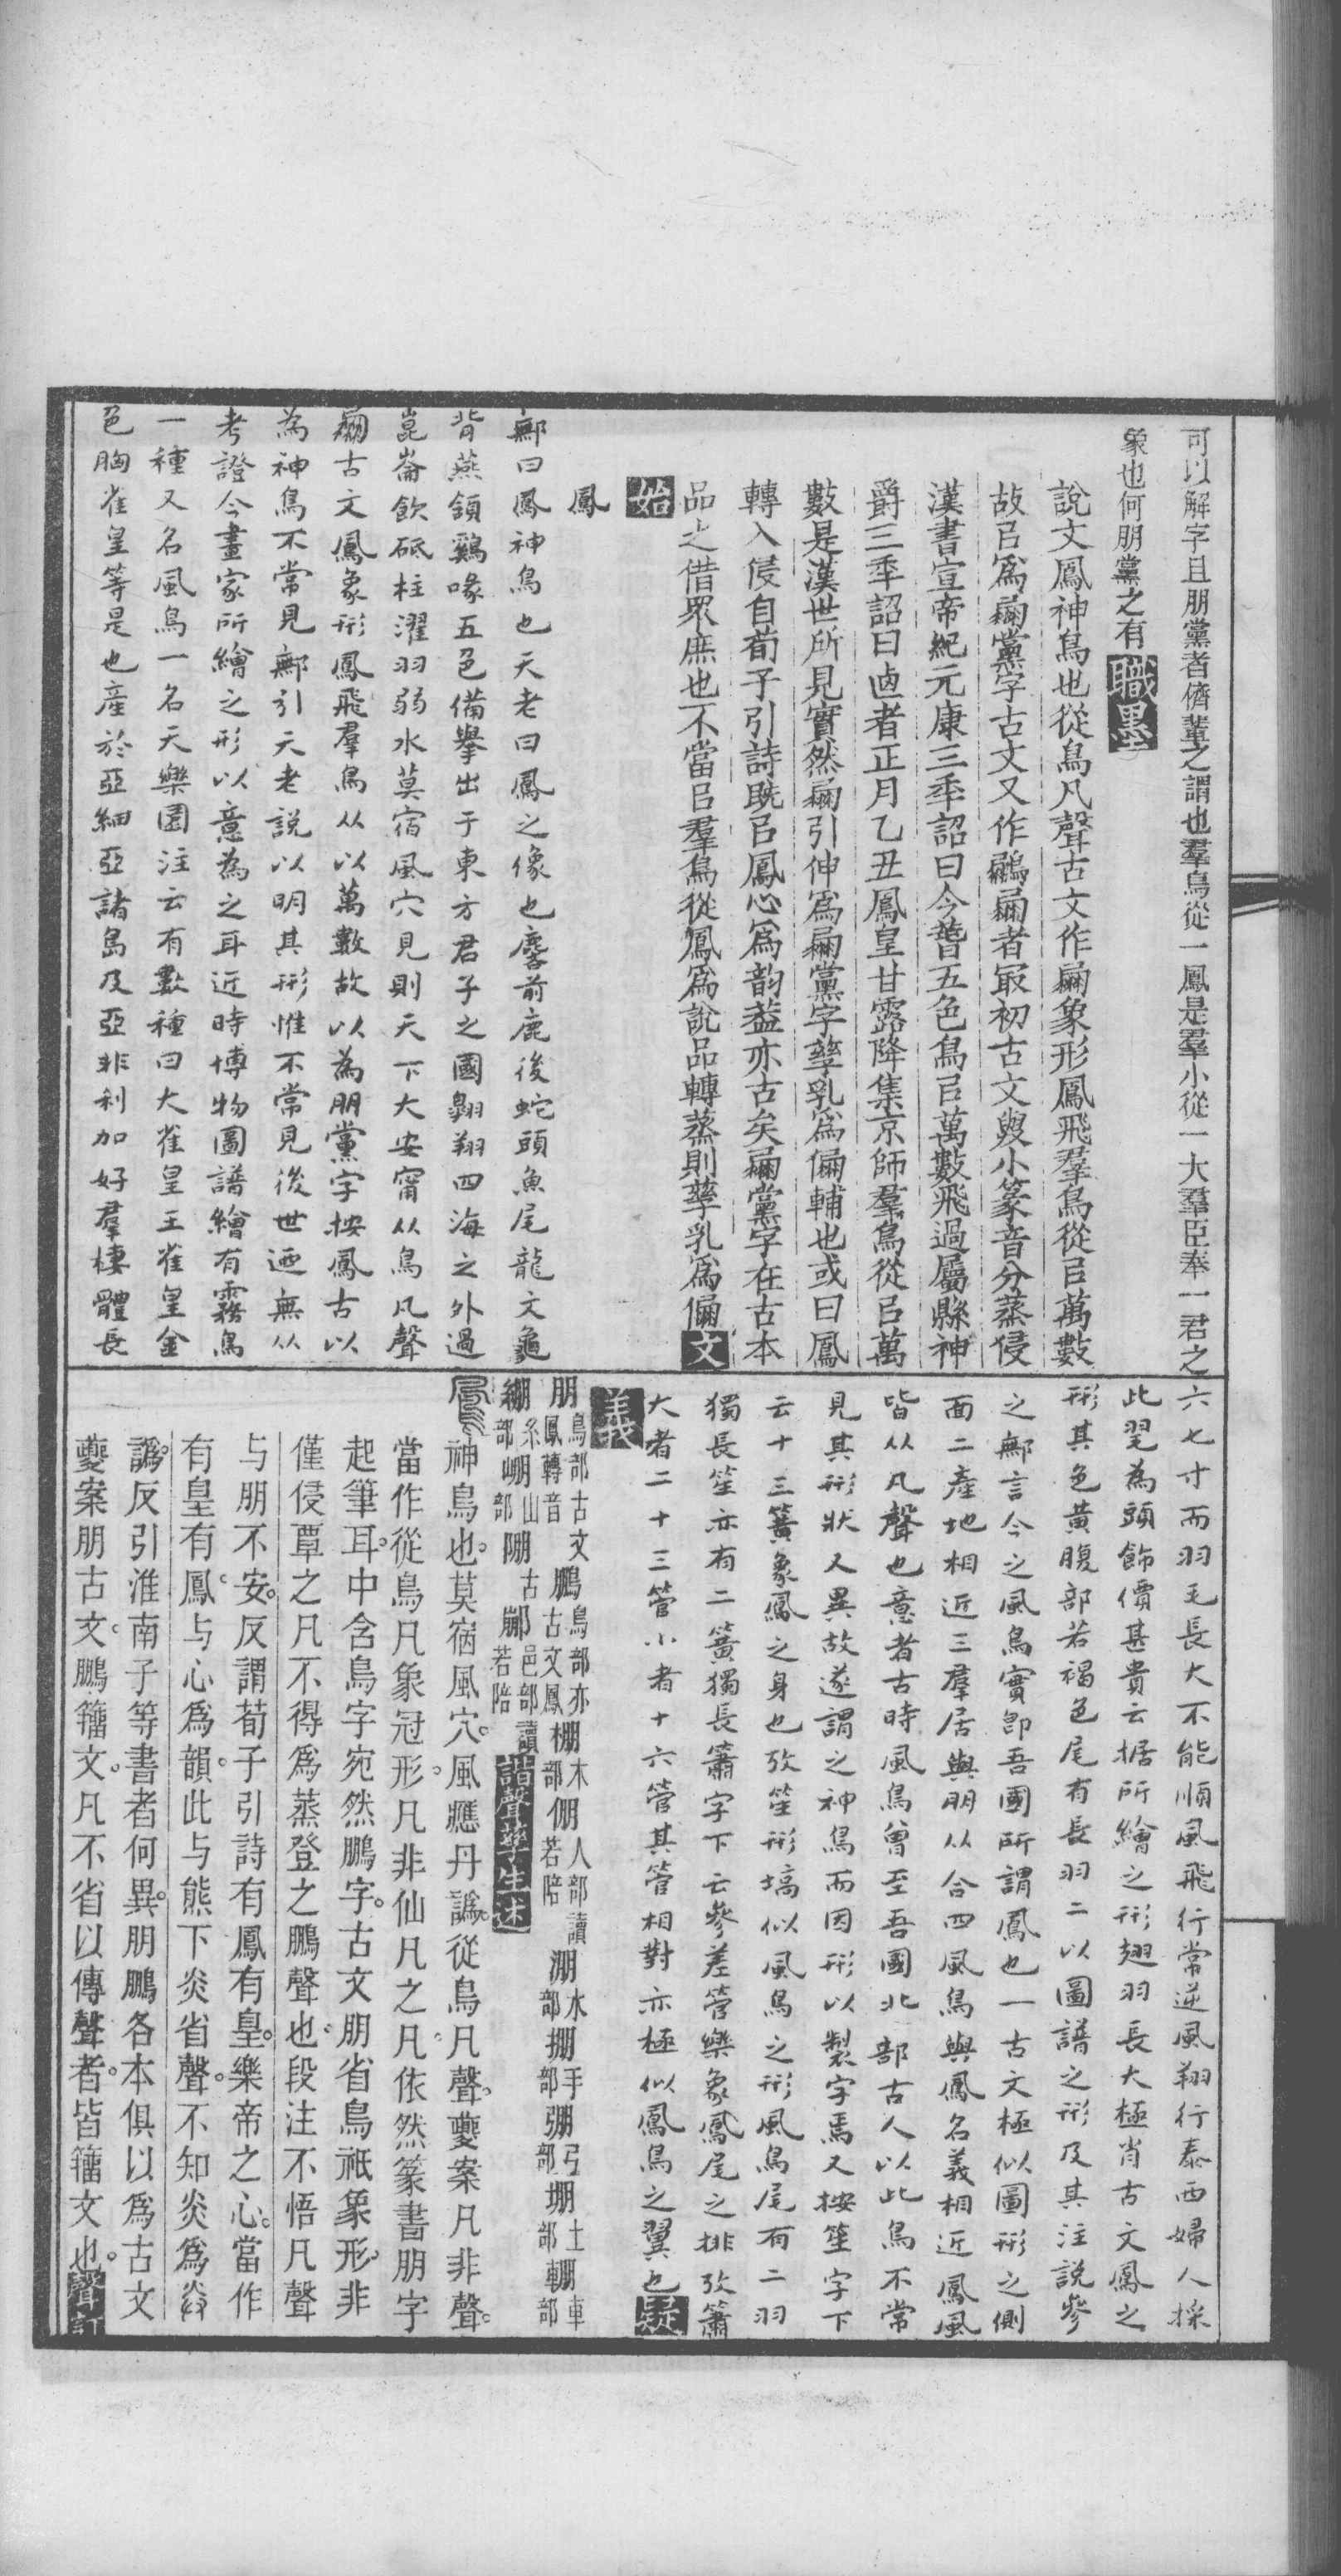 可以解字且朋黨者儕輩之謂也羣鳥從一鳳是羣小從一大羣臣奉一君之
象也何朋黨之有職墨
說文鳳神鳥也從鳥凡聲古文作𦐧象形鳳飛羣鳥從㠯萬數
故㠯爲𦐧黨字古文又作鵬𦐧者冣初古文叟小篆音分蒸侵
漢書宣帝紀元康三秊詔曰今萅五色鳥㠯萬數飛過屬縣神
爵三秊詔曰迺者正月乙丑鳳皇甘露降集京師羣鳥從㠯萬
數是漢世所見實然𦐧引伸爲𦐧黨字孳乳爲倗輔也或曰鳳
轉入侵自荀子引詩旣㠯鳳心爲韵葢亦古矣𦐧黨字在古本
品之借眾庶也不當㠯羣鳥從鳳爲說品轉蒸則孳乳爲倗文
始
鳳
鄦曰鳳神鳥也天老曰鳳之像也麐前鹿後蛇頭魚尾龍文龜
背燕頷鷄喙五色備擧出于東方君子之國翺翔四海之外過
崑崙飲砥柱濯羽弱水莫宿風穴見則天下大安甯从鳥凡聲
𦐧古文鳳象形鳳飛羣鳥从以萬數故以為朋黨字按鳳古以
為神鳥不常見鄦引天老説以明其形惟不常見後世迺無从
考證今畫家所繪之形以意為之耳近時博物圖譜繪有霧鳥
一種又名風鳥一名天樂園注云有數種曰大雀皇王雀皇金
色胸雀皇等是也産於亞細亞諸島及亞非利加好羣棲體長
六七寸而羽毛長大不能順風飛行常逆風翔行泰西婦人採
此毣為頭飾價甚貴云据所繪之形翅羽長大極肖古文鳳之
形其色黄腹部若褐色尾有長羽二以圖譜之形及其注説參
之鄦言今之風鳥實卽吾國所謂鳳也一古文極似圖形之側
面二產地相近三羣居與朋从合四風鳥與鳳名義相近鳳風
皆从凡聲也意者古時風鳥曾至吾國北部古人以此鳥不常
見其形狀又異故遂謂之神鳥而因形以製字焉又按笙字下
云十三簧象鳳之身也攷笙形塙似風鳥之形風鳥尾有二羽
獨長笙亦有二簧獨長簫字下云參差管樂象鳳尾之排攷簫
大者二十三管小者十六管其管相對亦極似鳳鳥之翼也疑
義
朋鳥部古文鳳轉音鵬鳥部亦古文鳳棚木部倗人部讀若陪淜水部掤手部弸弓部堋土部輣車部
綳糸部崩山部𨹹古崩䣙邑部讀若陪諧聲孳生述
神鳥也莫宿風穴風應丹譌從鳥凡聲夔案凡非聲
當作從鳥凡象冠形凡非仙凡之凡依然篆書朋字
起筆耳中含鳥字宛然鵬字古文朋省鳥祇象形非
僅侵覃之凡不得爲蒸登之鵬聲也段注不悟凡聲
与朋不安反謂荀子引詩有鳳有皇樂帝之心當作
有皇有鳳与心爲韻此与熊下炎省聲不知炎爲
譌反引淮南子等書者何異朋鵬各本俱以爲古文
夔案朋古文鵬籒文凡不省以傳聲者皆籒文也聲訂